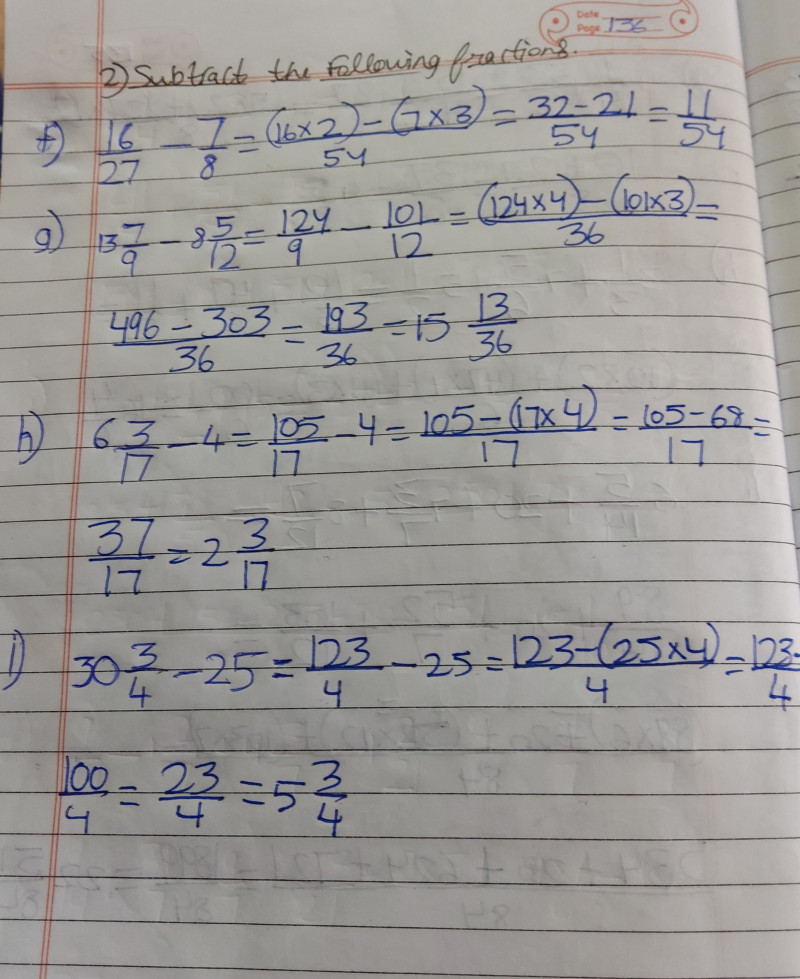 Date
Page 136
2) Subtract the following fractions.
f) 16/27 - 7/8 = (16×2)-(7×3)/54 = 32-21/54 = 11/54
g) 13 7/9 - 8 5/12 = 124/9 - 101/12 = (124×4)-(101×3)/36 =
496-303/36 = 193/36 = 15 13/36
h) 6 3/17 - 4 = 105/17 - 4 = 105-(17×4)/17 = 105-68/17 =
37/17 = 2 3/17
i) 30 3/4 - 25 = 123/4 - 25 = 123-(25×4)/4 = 123-/4
100/4 = 23/4 = 5 3/4